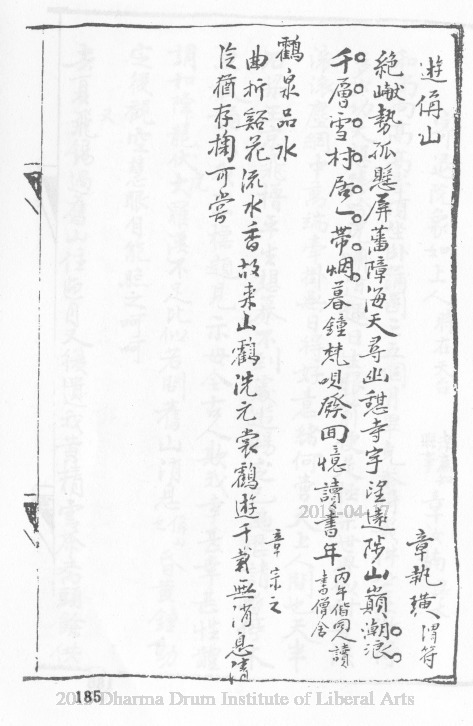 遊偁山
章執璜 渭符
絶巘勢孤懸屏藩障海天尋幽憩寺宇望遠陟山巔潮浪
千層雪村居一帶烟暮鐘梵唄發回憶讀書年 丙午偕同人讀
書僧舍
鸛泉品水
章宗之
曲折谿花流水香故来山鸛洗元裳鶴遊千載無消息清
泠猶存掬可嘗
185
Dharma Drum Institute of Liberal Arts